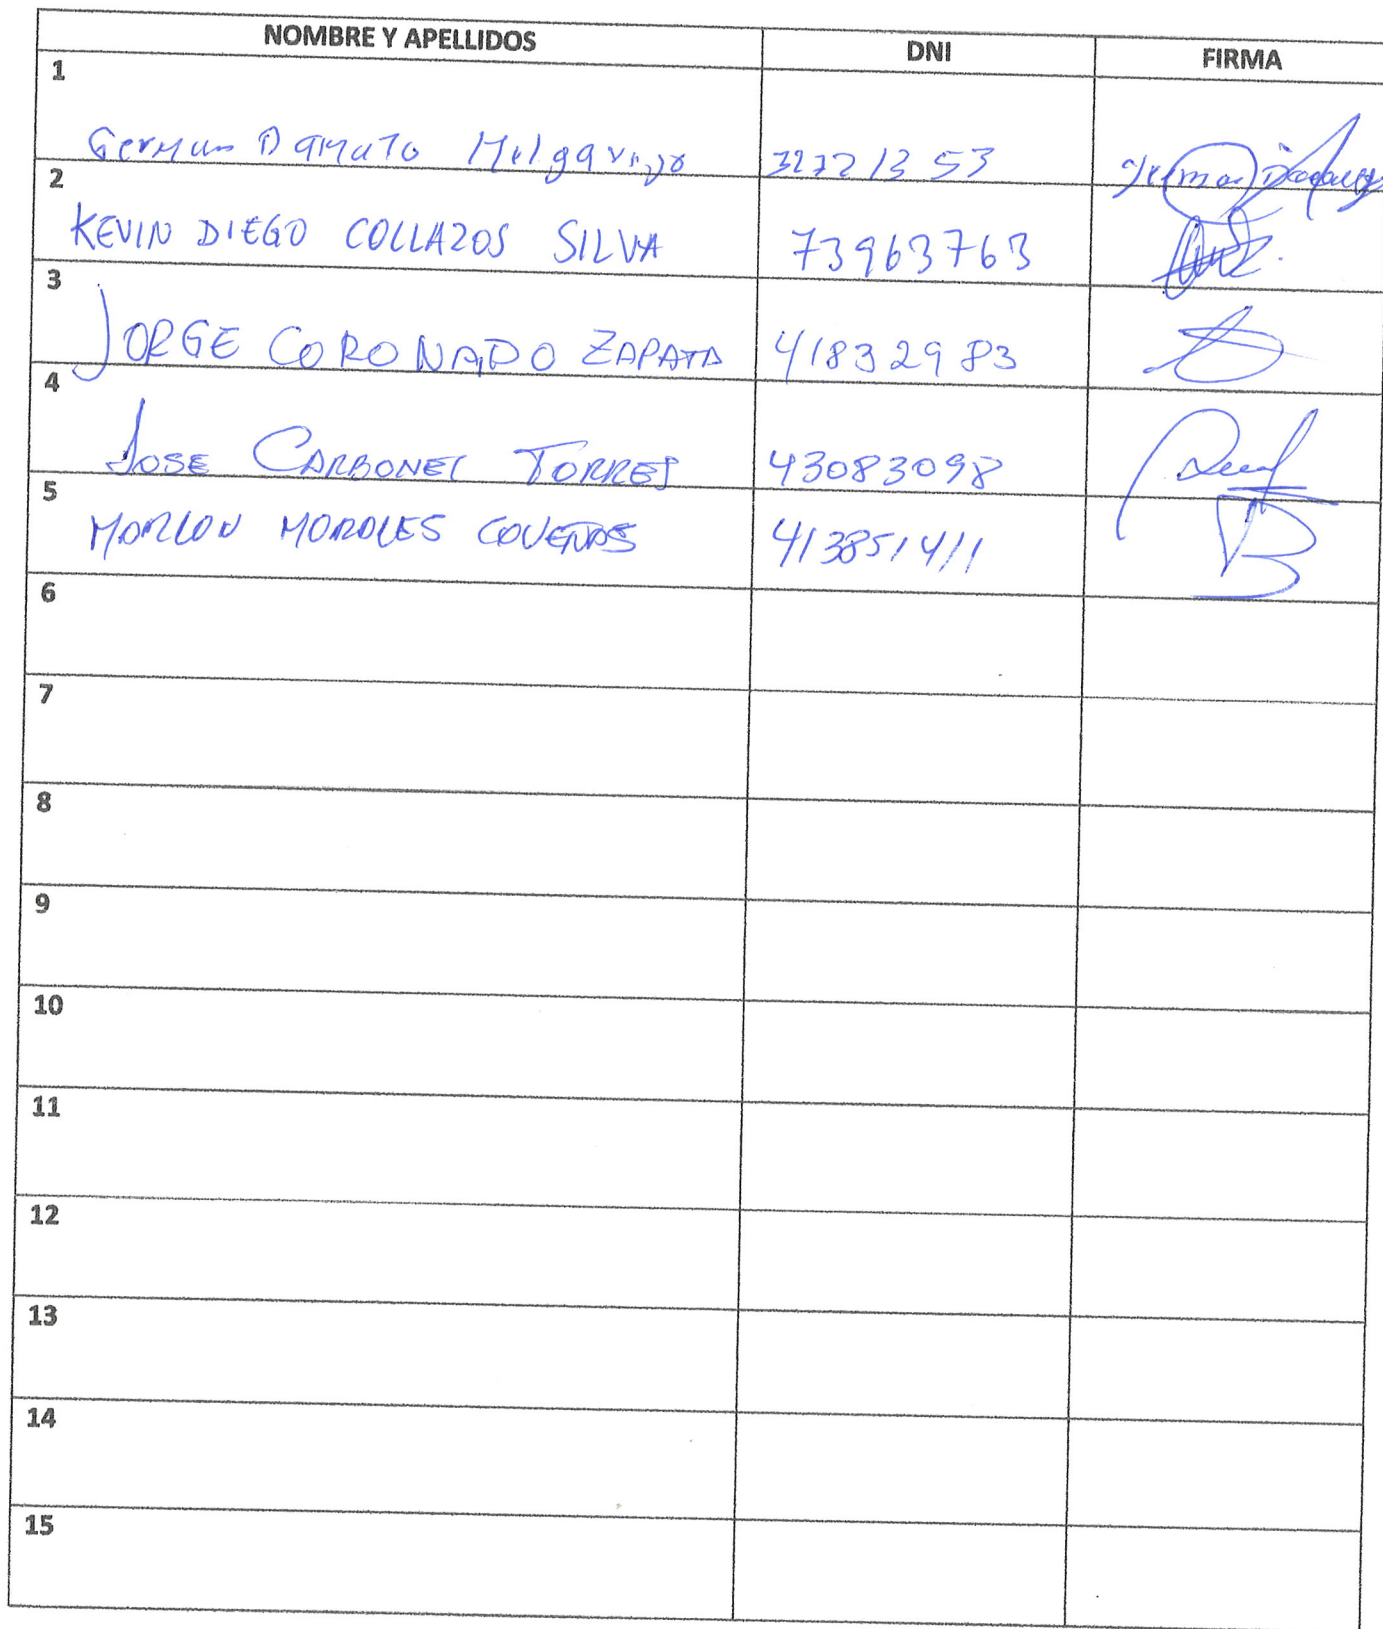 NOMBRE Y APELLIDOS DNI FIRMA
1
German Damato Melgarejo 32221353
2
KEVIN DIEGO COLLAZOS SILVA 73963763
3
JORGE CORONADO ZAPATA 41832983
4
JOSE CARBONEL TORRES 43083098
5
MORLON MOROLES COVEÑOS
6
7
8
9
10
11
12
13
14
15